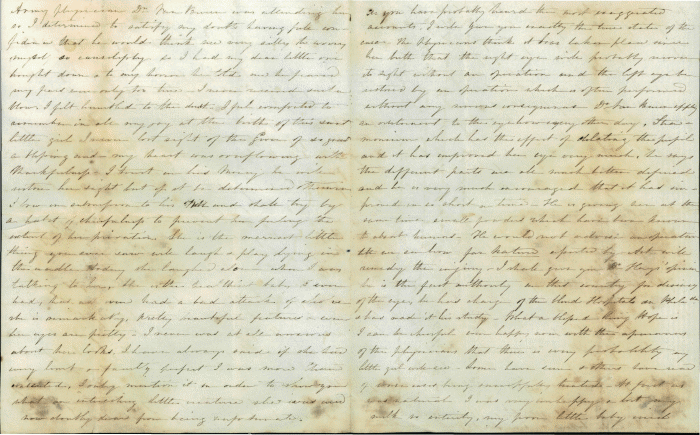 Army Physician Dr. was attending here
so I determined to satisfy my doubts having full con
fidence that he would think me very silly to worry
myself so so I had my dear little one
brought down & to my horror he told me he feared
my fears were only too true I never received such a
blow I felt humbled to the dust. I felt compelled to
in all my joy at the birth of this sweet
little girl I never lost sight of the Giver of so great
a blessing and my heart was overflowing with
thankfulness I trust in his Mercy he will
restore her sight but if it is determined otherwise
I bow in submission to his will and shall try by
a of cheerfulness to prevent her feeling the
extent of her privation. She is the merriest little
thing you ever saw will laugh & play lying in
the cradle. To day she laughed aloud when I was
talking to her, she is the healthiest baby I ever
had, has not even had a bad attack of
she is remarkably pretty beautiful features & even
her eyes are pretty. I never was at all
about her looks, I have always said if she had
any but a perfect I was more than
satisfied. I only mention it in order to show you
what an interesting little creature she is and
now doubly dear from being unfortunate.
As you have probably heard the most exaggerated
accounts, I will give you exactly the true state of the
case. The Physicians think it has taken place since
her birth that the right eye will probably recover
its sight without an operation and the left eye be
restored by an operation which is often performed
without any serious consequences. Dr. apply
an ointment to the eyebrows every other day,
which has the effect of dilating the pupil
and it has improved her eyes very much, he says
the different parts are all much better defined
and he is very much encouraged that it has im
proved in so short a time. He is giving her at the
same time small powders which have been known
to absorb . He would not advise an operation
for Nature assisted by Art will
remedy the injury. I shall give you Dr. Hays opinion
he is the first authority in this country for diseases
of the eyes, he has charge of the Blind Hospitals in Phila
& has made it his study. What a blessed thing Hope is
I can be cheerful even happy now with the assurances
of the physicians that there is every probability my
little girl will see. Some have seen others have seen
after being unsuccessfully treated. At first as
was natural I was very unhappy & wept
so entirely, my poor little baby would